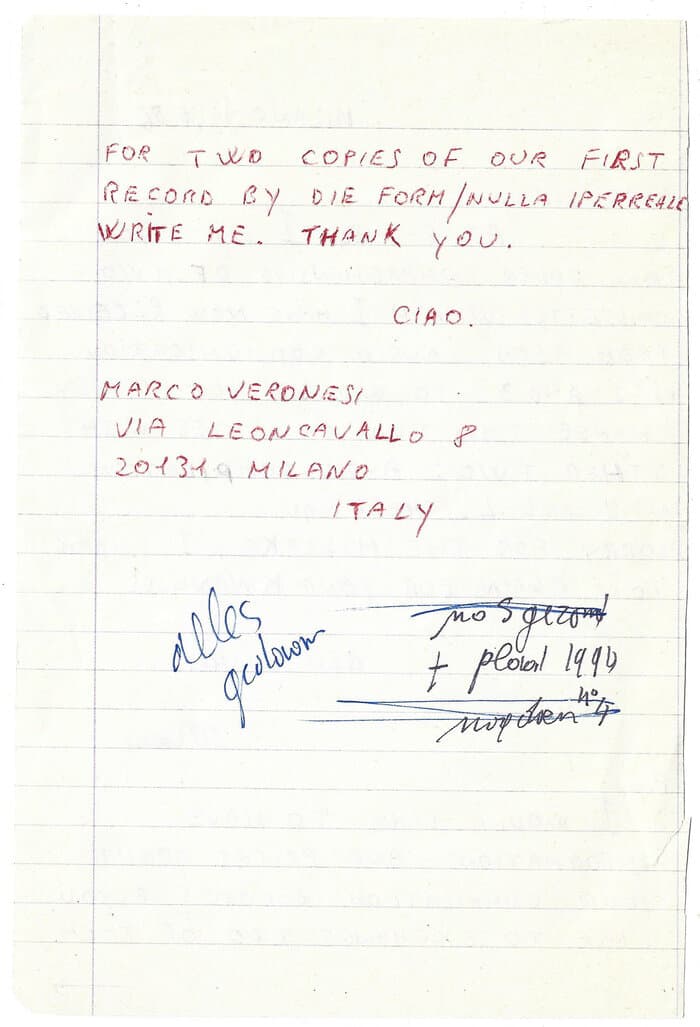 FOR TWO COPIES OF OUR FIRST
RECORD BY DIE FORM/NULLA IPERREALE
WRITE ME. THANK YOU.
CIAO.
MARCO VERONESI
VIA LEONCAVALLO 8
20131 MILANO
ITALY
alles
no 5
+
no